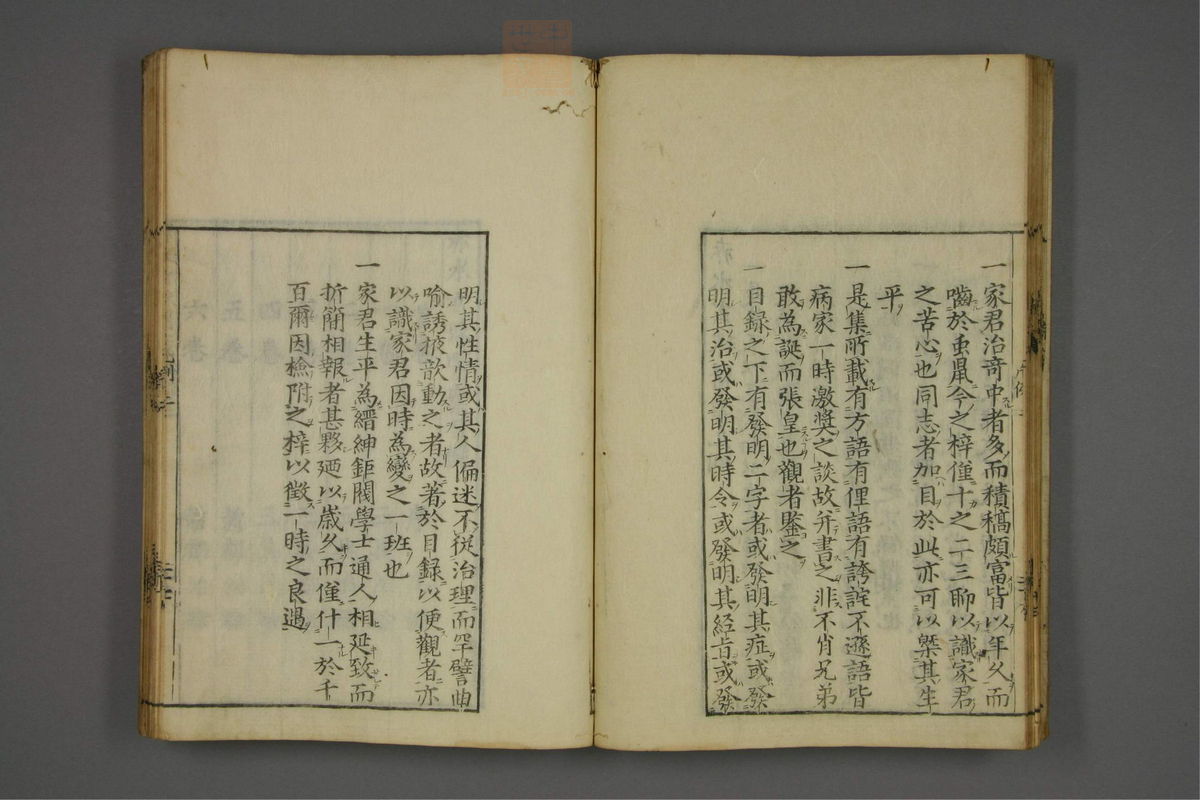 一家君治奇中者多而積稿頗富皆以年久而
嚙於虫鼠今之梓僅十之二三聊以識家君
之苦心也同志者加目於此亦可以槩其生
平
一是集所載有方語有俚語有誇詫不遜語皆
病家一時激奬之談故并書之非不肖兄弟
敢為誕而張皇也觀者鑒之
一目録之下有發明二字者或發明其症或發
明其治或發明其時令或發明其經旨或發
明其性情或其人偏迷不從治理而罕譬曲
喻誘掖歆動之者故著於目録以便觀者亦
以識家君因時為變之一班也
一家君生平為縉紳鉅閥學士通人相延致而
折簡相報者甚夥迺以歳久而僅什一於千
百爾因檢附之梓以徵一時之良遇